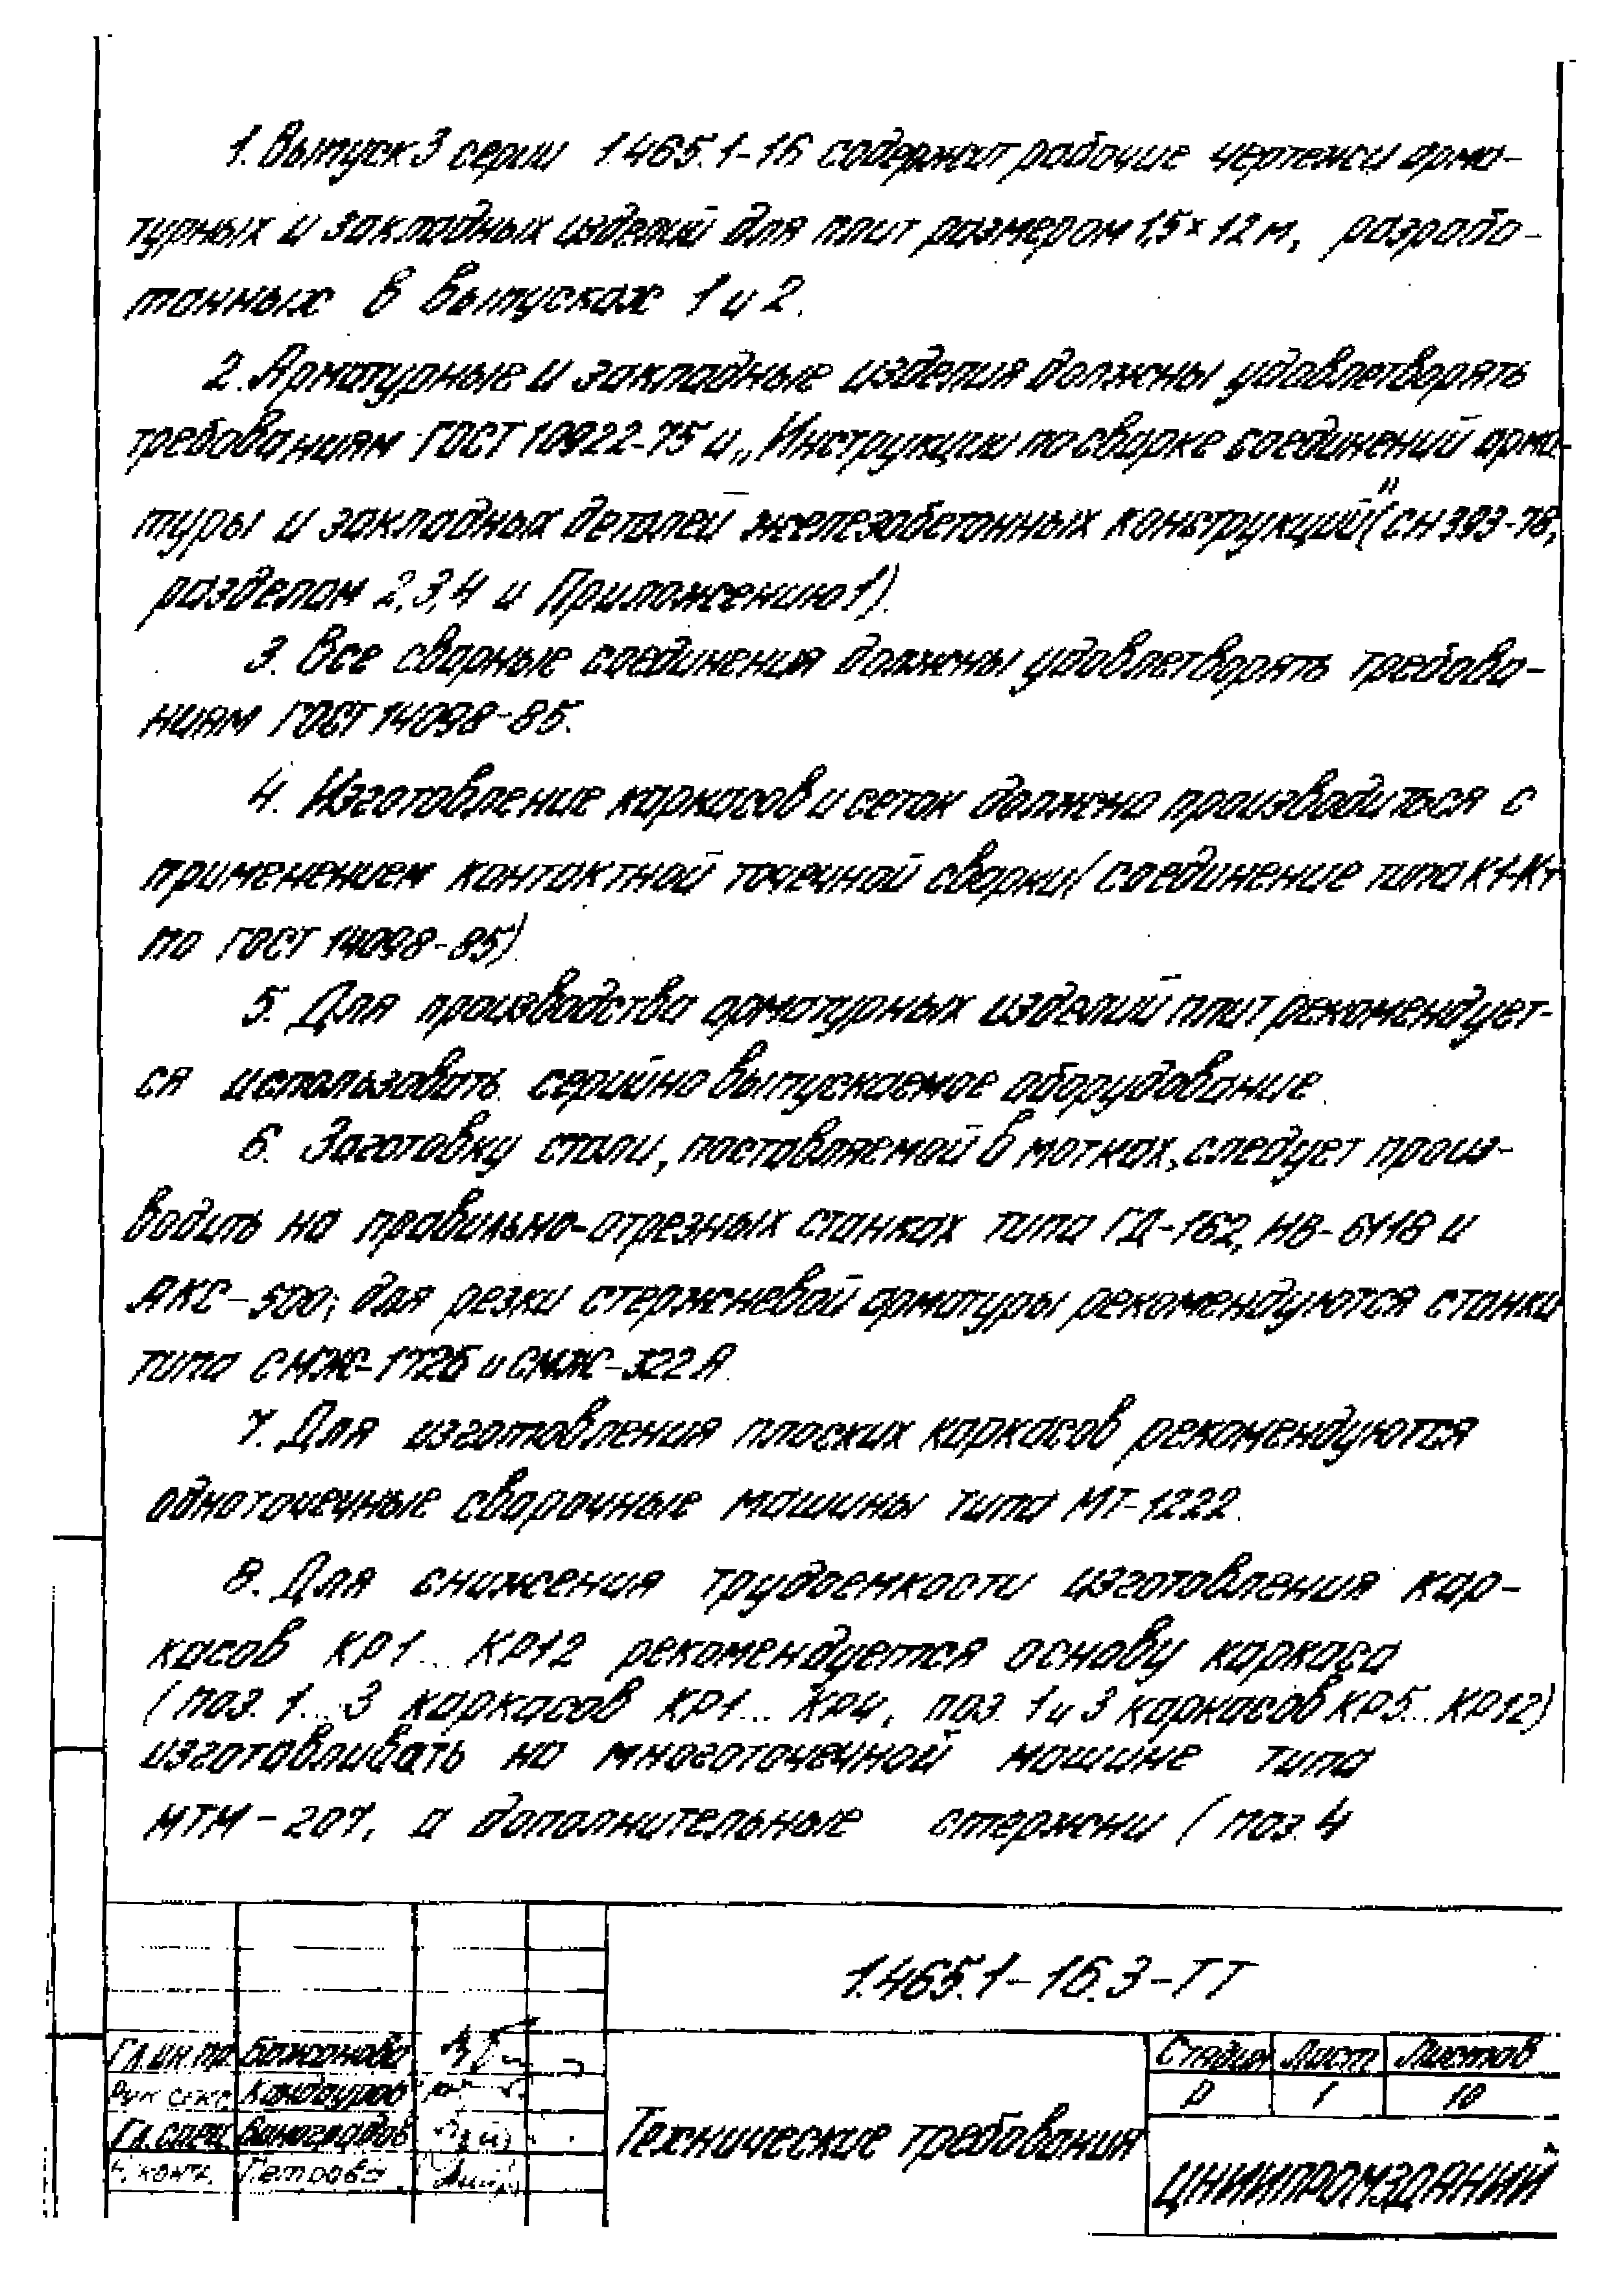 1. Выпуск 3 серии 1.465.1-16 содержит рабочие чертежи арма-
турных и закладных изделий для плит размером 1,5×12м, разрабо-
танных в выпусках 1 и 2.
2. Арматурные и закладные изделия должны удовлетворять
требованиям ГОСТ 10922-75 и „Инструкции по сварке соединений арма-
туры и закладных деталей железобетонных конструкций" (СН 393-78,
разделам 2,3,4 и Приложению 1).
3. Все сварные соединения должны удовлетворять требова-
ниям ГОСТ 14098-85.
4. Изготовление каркасов и сеток должно производиться с
применением контактной точечной сварки (соединение типа К1-Кт
по ГОСТ 14098-85)
5. Для производства арматурных изделий плит рекомендует-
ся использовать серийно выпускаемое оборудование.
6. Заготовку стали, поставляемой в мотках, следует произ-
водить на правильно-отрезных станках типа ГД-162, НВ-6118 и
АКС-500; для резки стержневой арматуры рекомендуются станки
типа СМЖ-172Б и СМЖ-322А.
7. Для изготовления плоских каркасов рекомендуются
одноточечные сварочные машины типа МТ-1222.
8. Для снижения трудоемкости изготовления кар-
касов КР1...КР12 рекомендуется основу каркаса
(поз. 1...3 каркасов КР1...КР4, поз. 1 и 3 каркасов КР5...КР12)
изготавливать на многоточечной машине типа
МТМ-207, а дополнительные стержни (поз. 4
1.465.1-16.3-ТТ
Гл.ин.пр. Бажанова
Рук сект. Кандауров
Гл.спец Виноградов
Н. контр. Петрова
Технические требования
Стадия Лист Листов
Р 1 10
ЦНИИПРОМЗДАНИЙ